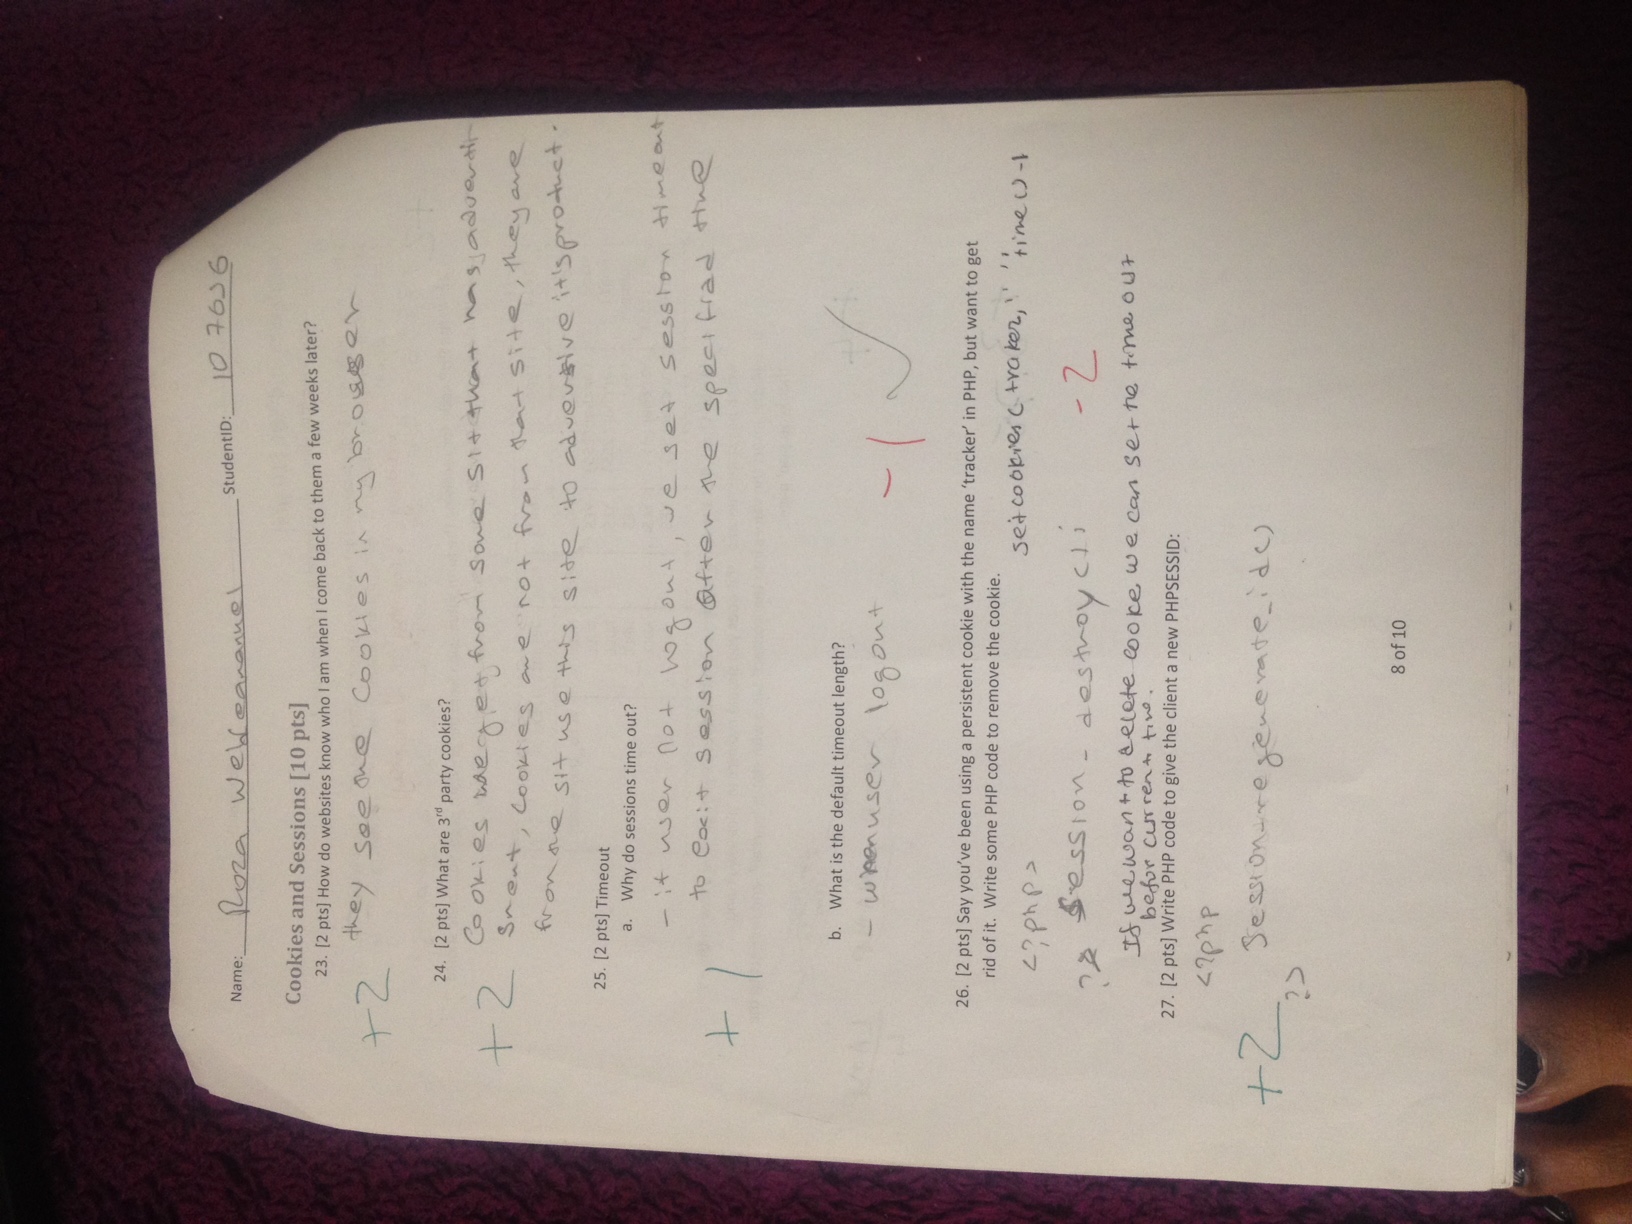 Name: Roza StudentID: 107636
Cookies and Sessions [10 pts]
23. [2 pts] How do websites know who I am when I come back to them a few weeks later?
they see the Cookies in my browser
+2
24. [2 pts] What are 3rd party cookies?
Cookies we get from some sit that has adverti
+2
sment, cookies are not from that site, they are
from the sit use this site to advertive it's product.
25. [2 pts] Timeout
a. Why do sessions time out?
- if user not logout, we set session timeout
to exit session after the specifiad time
+1
b. What is the default timeout length?
- when user logout
-1 ✓
26. [2 pts] Say you've been using a persistent cookie with the name 'tracker' in PHP, but want to get
rid of it. Write some PHP code to remove the cookie.
setcookies( traker, " " time()-1
<?php>
?> Session_destroy();
-2
If we want to delete cooke we can set the time out
befor current time.
27. [2 pts] Write PHP code to give the client a new PHPSESSID:
<?php
+2
Session_regenerate_id()
?>
8 of 10